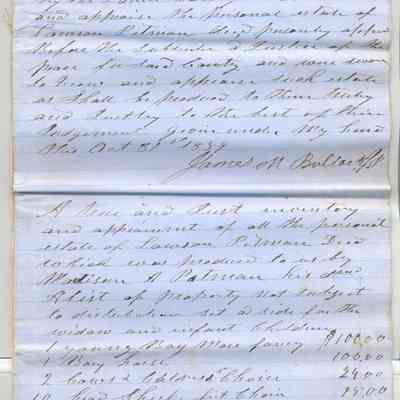 and appraise the personal estate of
Lawson Patman Decd personly appeard
before the Subscriber a Justice of the
peace for said County and were sworn
to view and appraise such estate
as Shall be produced to them truly
and Justly to the best of their
Judgement given under My hand
this Oct 31st 1859
James M Bullock JP
A true and Just inventory
and appraisment of all the personal
estate of Lawson Patman Decd
which was produce to us by
Madison A Patman his
A list of property not subject
to distribution set a side for the
widow and infant Children
1 young Bay Mare fancy $100.00
1 Bay horse 100.00
2 Cows & Calves Choice 24.00
10 head Sheep 1st Choice